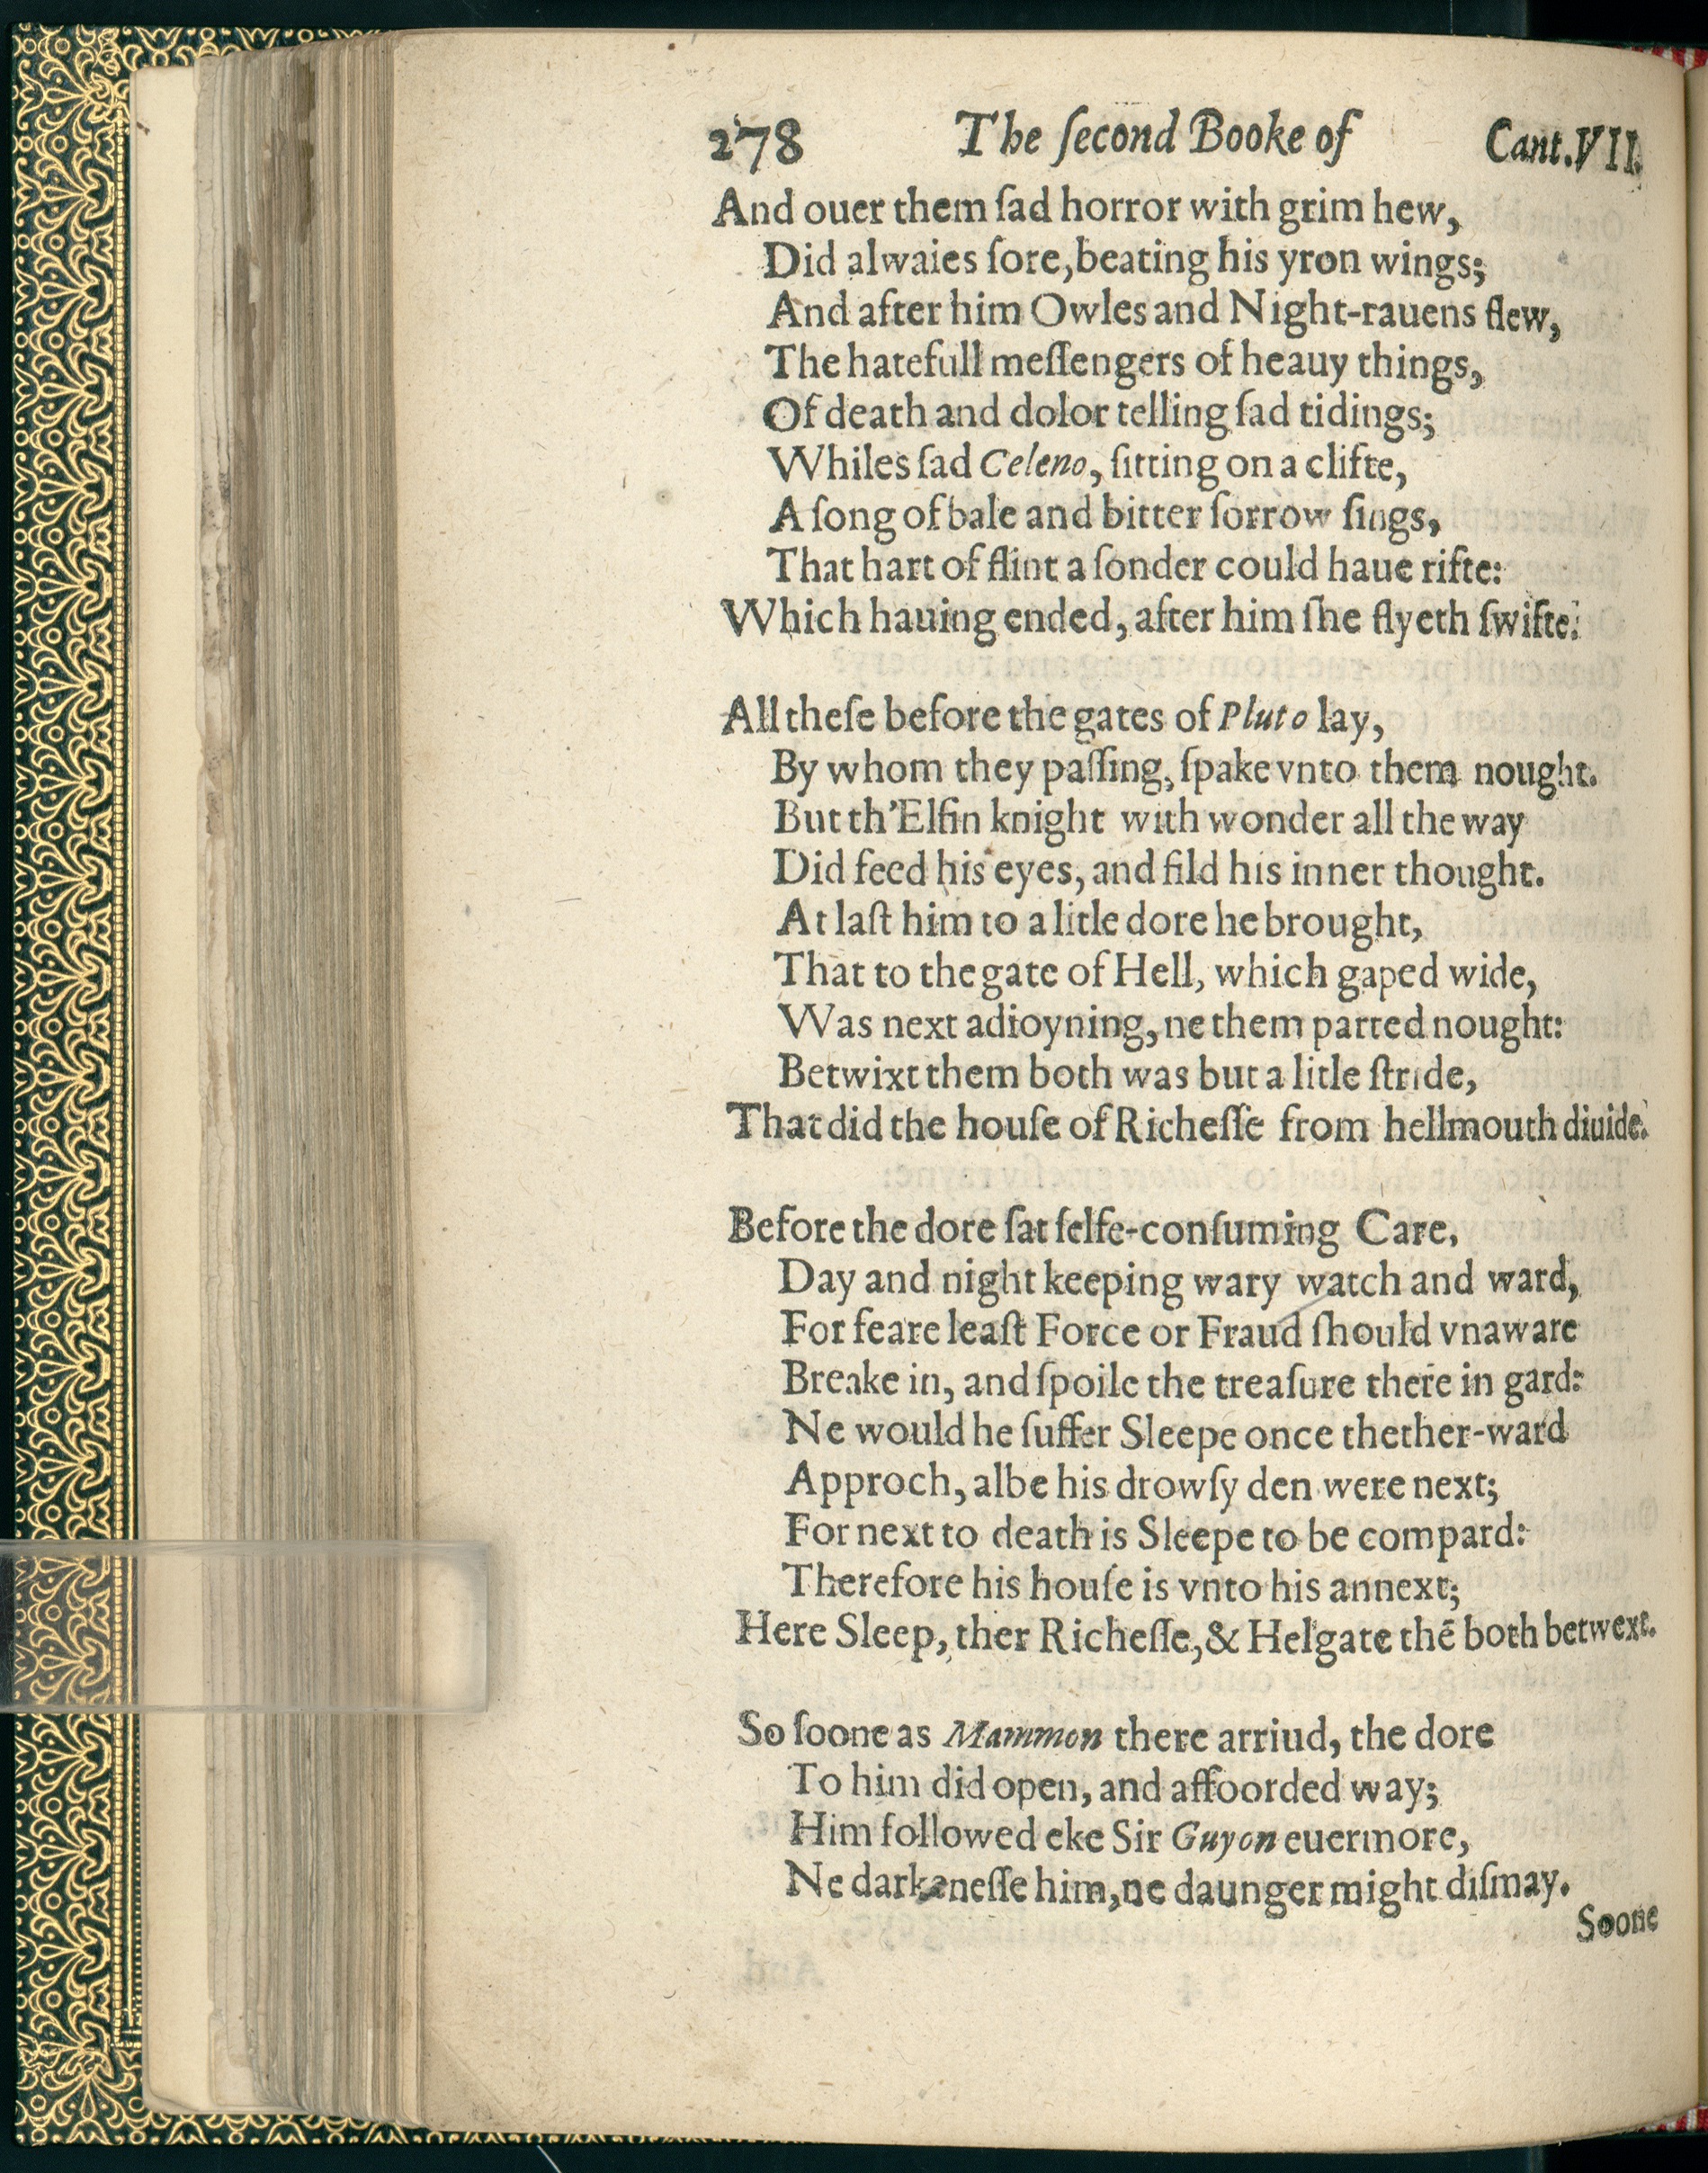 278 The ſecond Booke of Cant.VII.
And ouer them ſad horror with grim hew,
Did alwaies ſore, beating his yron wings;
And after him Owles and Night-rauens flew,
The hatefull meſſengers of heauy things,
Of death and dolor telling ſad tidings;
Whiles ſad Celeno, ſitting on a clifte,
A ſong of bale and bitter ſorrow ſings,
That hart of flint a ſonder could haue rifte:
Which hauing ended, after him ſhe flyeth ſwifte.
All theſe before the gates of Pluto lay,
By whom they paſſing, ſpake vnto them nought.
But th'Elfin knight with wonder all the way
Did feed his eyes, and fild his inner thought.
At laſt him to a litle dore he brought,
That to the gate of Hell, which gaped wide,
Was next adioyning, ne them parted nought:
Betwixt them both was but a litle ſtride,
That did the houſe of Richeſſe from hellmouth diuide.
Before the dore ſat ſelfe-conſuming Care,
Day and night keeping wary watch and ward,
For feare leaſt Force or Fraud ſhould vnaware
Breake in, and ſpoile the treaſure there in gard:
Ne would he ſuffer Sleepe once thether-ward
Approch, albe his drowſy den were next;
For next to death is Sleepe to be compard:
Therefore his houſe is vnto his annext;
Here Sleep, ther Richeſſe, & Helgate thē both betwext.
So ſoone as Mammon there arriud, the dore
To him did open, and affoorded way;
Him followed eke Sir Guyon euermore,
Ne darkeneſſe him, ne daunger might diſmay.
Soone